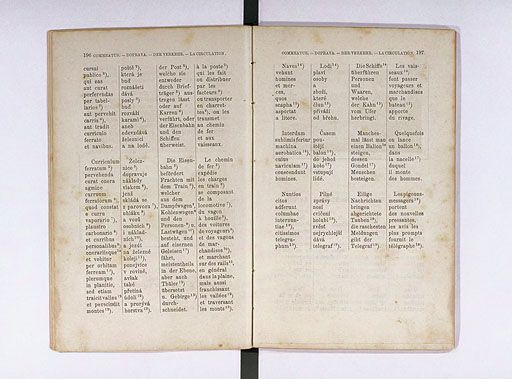 196 COMMEATUS. — DOPRAVA. — DER VERKEHR. — LA CIRCULATION.
cursui
publico 3),
qui eas
aut curat
perferendas
per tabel-
larios 7)
aut pervehit
carris 6),
aut tradit
curriculo
ferrato
et navibus.
poště 3),
která je
buď
rozn��šeti
dává
posly 7)
buď
rozváží
karami 6),
aneb
odevzdává
železnici
neveštr
a na lodě.
der Post 3),
welche sie
entweder
durch Brief-
träger 7) aus-
tragen lässt
oder auf
Karren 6)
verführt, oder
der Eisenbahn
und den
Schiffen
überweist.
à la poste 3),
qui les fait
ou distribuer
par les
facteurs 7)
ou transporter
en charret-
tes 6), ou les
transmet
au chemin
de fer
et aux
vaisseaux.
Curriculum
ferratum 8)
pervehenda
curat onera
agmine
curruum
ferratorum 9),
quod constat
e curru
vaporario 7),
plaustro
carbonario 8)
et curribus
personalibus 9)
onerariisque 10)
et vehitur
per orbitam
ferream 11),
plerumque
in planitie,
sed etiam
traicit valles 12)
et perscindit
montes 13).
Želez-
nice 5)
dopravuje
náklady
vlakem 6),
jenž
skládá se
z parovozu 7),
uhláku 8)
a vozů
osobních 9)
i náklad-
ních 10),
a jezdí
na železné
koleji 11),
ponejvíce
v rovině,
avšak
také
přetíná
údolí 12)
a prorývá
horstva 13).
Die Eisen-
bahn 5)
befördert
Frachten mit
dem Train 6),
welcher
aus dem
Dampfwagen 7),
Kohlenwagen 8)
und den
Personen- 9) u.
Lastwagen 10)
besteht, und
auf eisernen
Geleisen 11)
fährt,
meistentheils
in der Ebene,
aber auch
Thäler 12)
übersetzt
u. Gebirge 13)
durch-
schneidet.
Le chemin
de fer 5)
expédie
les charges
en train 6)
se composant
de la
locomotive 7),
du vagon
à houille 8),
des voitures
de voyageurs 9)
et des vagons
de mar-
chandises 10),
et marchant
sur des rails 11),
en général
dans la plaine,
mais aussi
franchissant
les vallées 12)
et traversant
les monts 13).
COMMEATUS. — DOPRAVA. — DER VERKEHR. — LA CIRCULATION. 197
Naves 14)
vehunt
homines
et mer-
ces,
quos
scapha 17)
asportat
a litore.
Lodi 14)
plaví
osoby
a
zboží,
které
člun 17)
přiváží
od břehu.
Die Schiffe 14)
überführen
Personen
und
Waaren,
welche
der Kahn 17)
vom Ufer
herbringt.
Les vais-
seaux 14)
font passer
voyageurs et
marchandises
que le
bateau 17)
apporte
du rivage.
Interdum
sublimis fertur
machina
aerobatica 15),
cuius
naviculam 17)
conscendunt
homines.
Časem
pou-
štějí
balon 15),
do jehož
koše 17)
vstupují
lidé.
Manches-
mal lässt man
einen Ballon 15)
steigen,
dessen
Gondel 17)
Menschen
besteigen.
Quelquefois
on lance
un ballon 15),
dans
la nacelle 17)
duquel
il monte
des hommes.
Nuntios
citos
adferunt
columbae
internun-
tiae 18),
citissimos
telegra-
phum 19).
Pilné
zprávy
nosí
cvičení
holubi 18),
zvěst
nejrychlejší
dává
telegraf 19).
Eilige
Nachrichten
bringen
abgerichtete
Tauben 18),
die raschesten
Meldungen
gibt der
Telegraf 19).
Les pigeons-
messagers 18)
portent
des nouvelles
pressantes,
les avis les
plus prompts
fournit le
télégraphe 19).